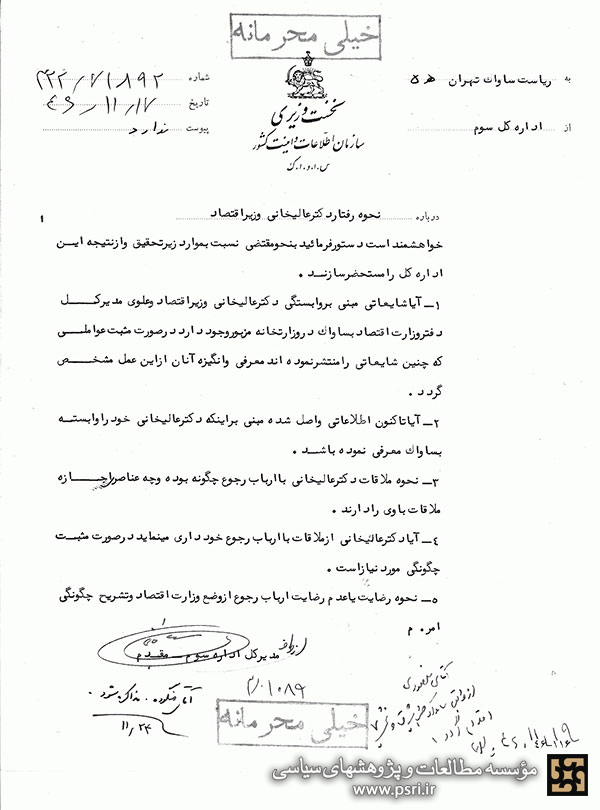 خیلی محرمانه
به ریاست ساواك تهران ۵ ه
از اداره کل سوم
نخست وزیری
سازمان اطلاعات و امنیت کشور
س.ا.و.ا.ک
شماره ۳۲۲/۷۱۸۹۲
تاریخ ۴۶/۱۱/۱۷
پیوست ندارد
درباره نحوه رفتار دکترعالیخانی وزیراقتصاد
خواهشمند است دستور فرمائید بنحومقتضی نسبت بموارد زیرتحقیق وازنتیجه ایـن
اداره کل رامستحضرسازنـد .
۱ـ آیاشایعاتی مبنی بروابستگی دکترعالیخانی وزیراقتصاد وعلوی مدیرکـل
دفتروزارت اقتصاد بساواك دروزارتخانه مزبوروجود دارد درصورت مثبت عواملـی
که چنین شایعاتی رامنتشرنموده اند معرفی وانگیزه آنان ازاین عمل مشخـص
گردد .
۲ـ آیاتاکنون اطلاعاتی واصل شده مبنی براینکه دکترعالیخانی خود راوابستـه
بساواك معرفی نموده باشـد .
۳ـ نحوه ملاقات دکترعالیخانی باارباب رجوع چگونه بوده وچه عناصراجـازه
ملاقات باوی رادارند .
٤ـ آیادکترعالیخانی ازملاقات باارباب رجوع خود داری مینماید درصورت مثبـت
چگونگی مورد نیازاست .
۵ـ نحوه رضایت یاعدم رضایت ارباب رجوع ازوضع وزارت اقتصاد وتشریح چگونگی
امر . م
مدیرکل اداره سوم ـ مقدم
از طرف
مذاکره شود .
۱۱/۲۴
خیلی محرمانه
مؤسسه مطالعات و پژوهشهای سیاسی
www.psri.ir